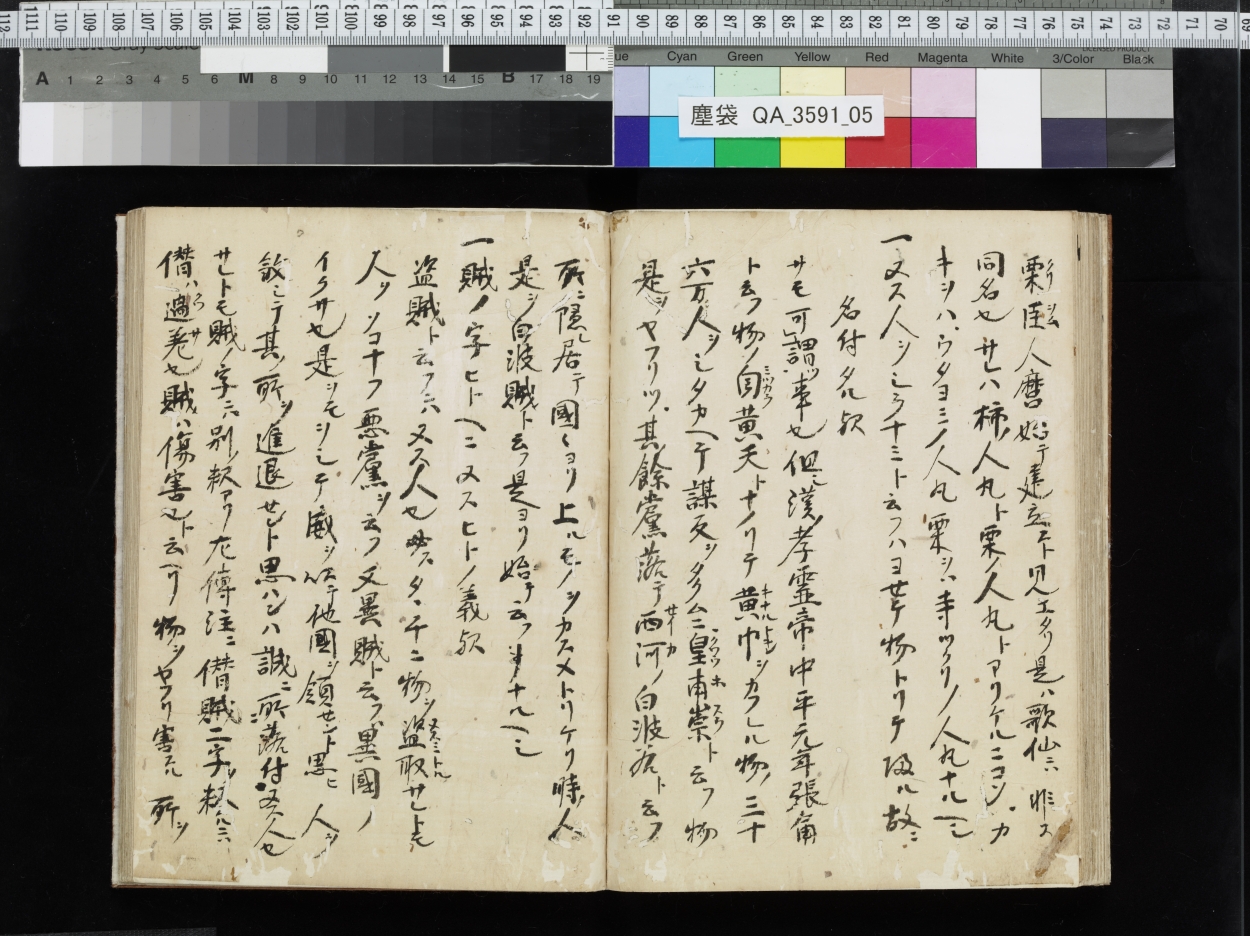 塵袋 QA_3591_05
栗栖人麿始テ建立スト見エタリ是ハ歌仙ニハ非ス
同名也サレハ柿ノ人丸ト栗ノ人丸トアリケルニコソ、カ
キシハ、ウタヨミノ人丸栗シハ寺ツクリノ人丸ナルヘシ
一ヌス人ヲシラナミト云フハヨせテ物トリテ帰ル故ニ
名付タル歟
サモ可謂事也但シ漢ノ孝霊帝ノ中平元年張角
ト云フ物ノ自黄天トナノリテ黄巾ヲカフレル物三十
六万人ヲシタカヘテ謀反ヲタクム皇甫嵩ト云フ物
是ヲヤフリツ、其餘黨落テ西河ノ白波谷ト云フ
所ニ隠レ居テ國々ヨリ上ルモノヲカスメトリケリ時ノ人
是ヲ白波賊ト云フ是ヨリ始テ云フナルヘシ
一賊ノ字ヒトヘニヌスヒトノ義歟
盗賊ト云フハヌス人也タヽチニ物ヲ盗取サレトモ
人ヲソコナフ悪黨ヲ云フ又異賊ト云フ異國ノ
イクサ也是ヲモシテ威ヲ以テ他國ヲ領セント思ヒ人ヲ
テ其ノ所ヲ進退セント思ハヽ誠ニ所落付ヌス人也
サレトモ賊ノ字ニハ別ノ釈アリ左傳注ニ僭賊二字ヲ釈ルニハ
僭ハ過差也賊ハ傷害也ト云ヘリ物ヲヤフリ害スル所ヲ
A 1 2 3 4 5 6 M 8 9 10 11 12 13 14 15 B 17 18 19
Cyan Green Yellow Red Magenta White 3/Color Black